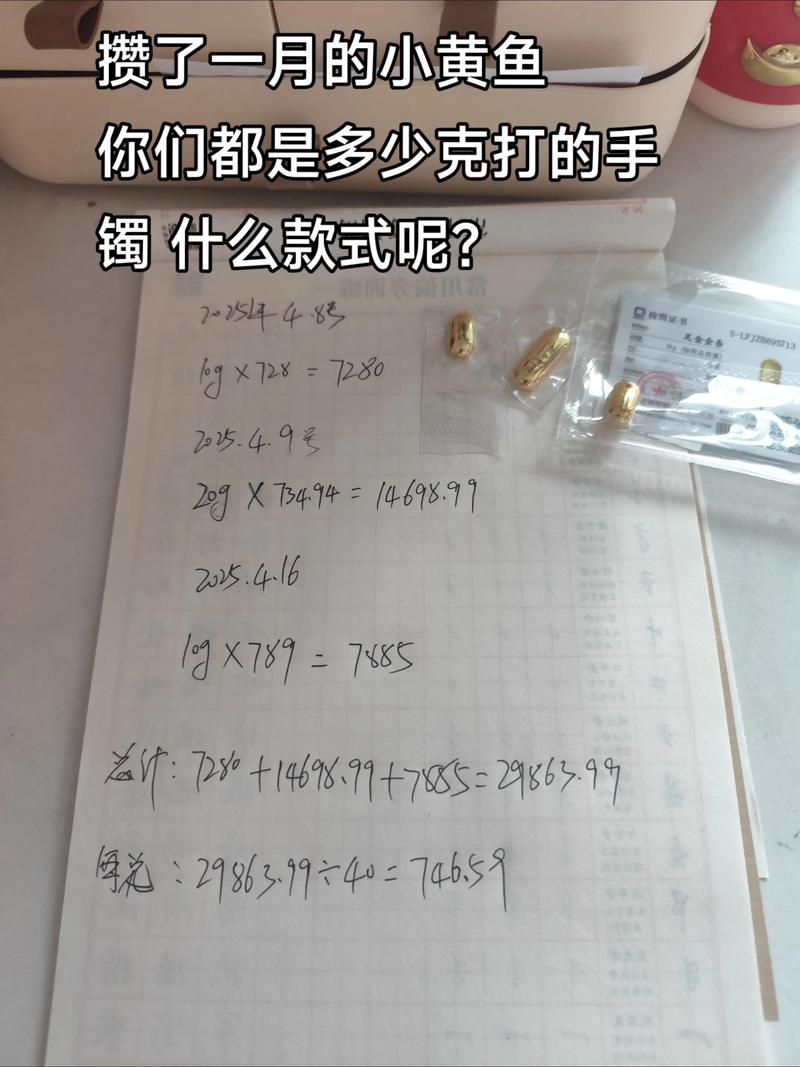 攒了一月的小黄鱼
你们都是多少克打的手
镯 什么款式呢?
常用偏旁训练一
2025年4.8号
10g×728=7280
2025.4.9号
20g×734.94=14698.99
2025.4.16
10g×789=7885
总计:7280+14698.99+7885=29863.99
每克:29863.99÷40=746.59
检测证书
S-LFJZB695713
足金金条